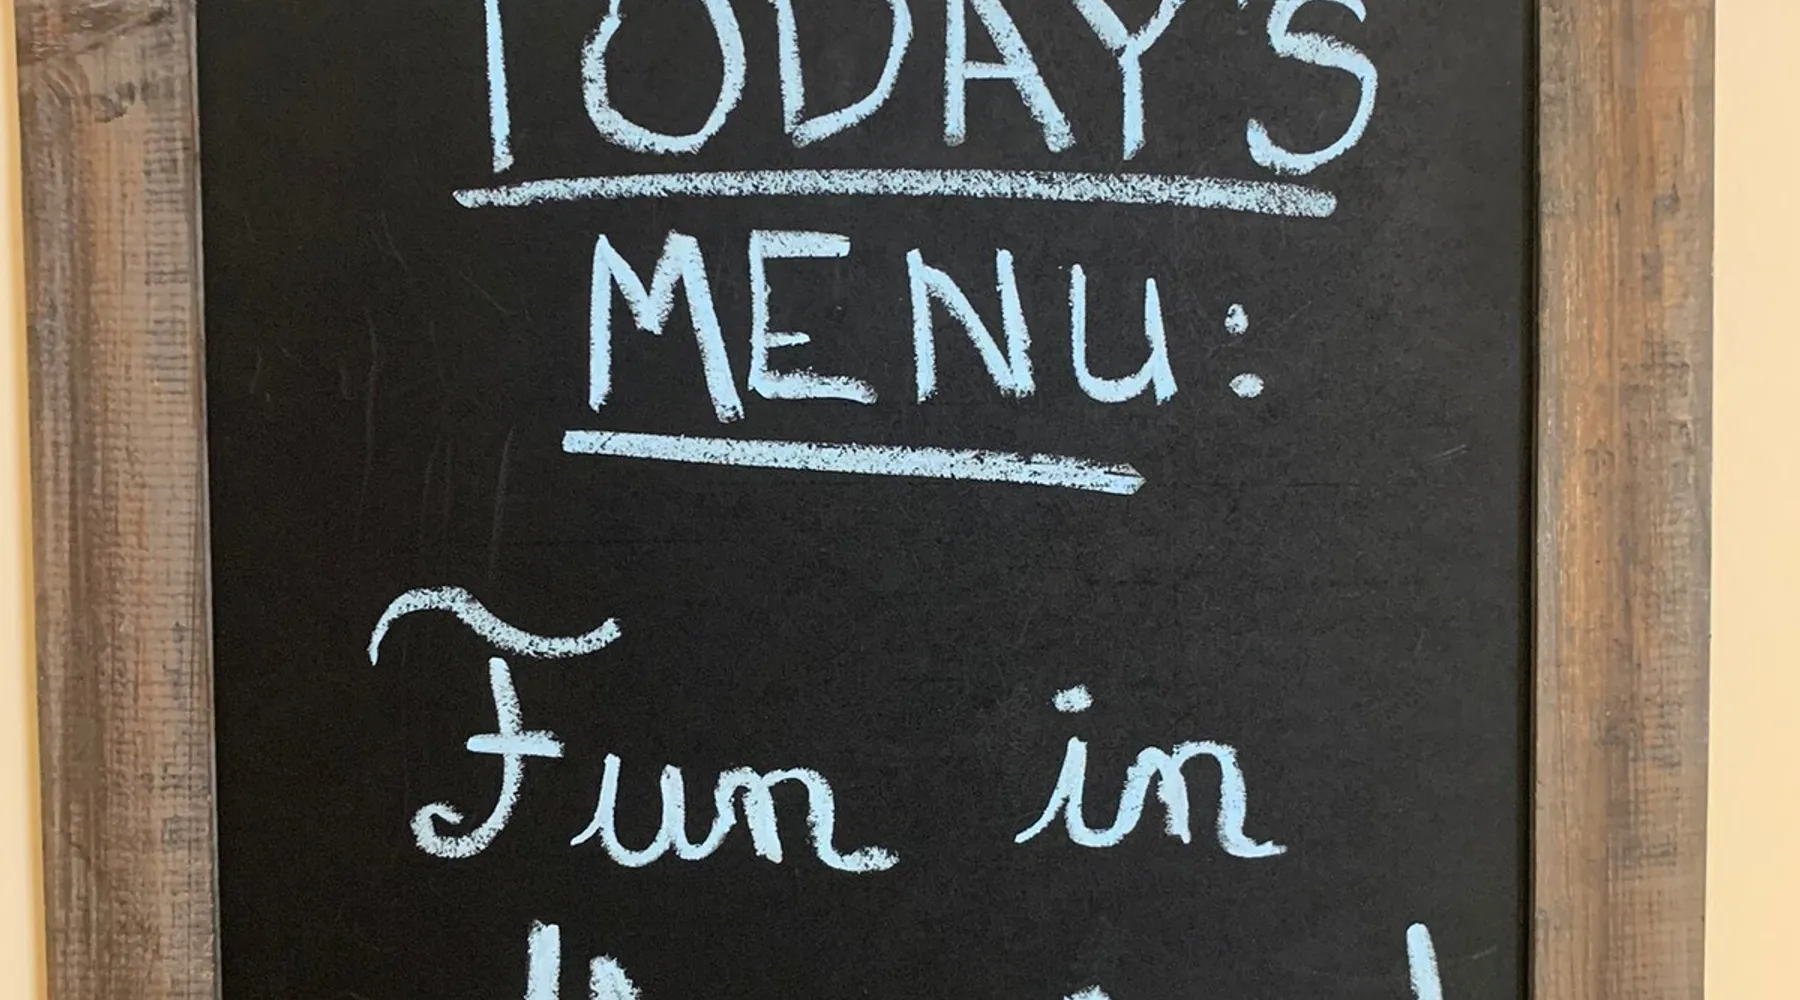 TODAY'S
MENU:
Fun in